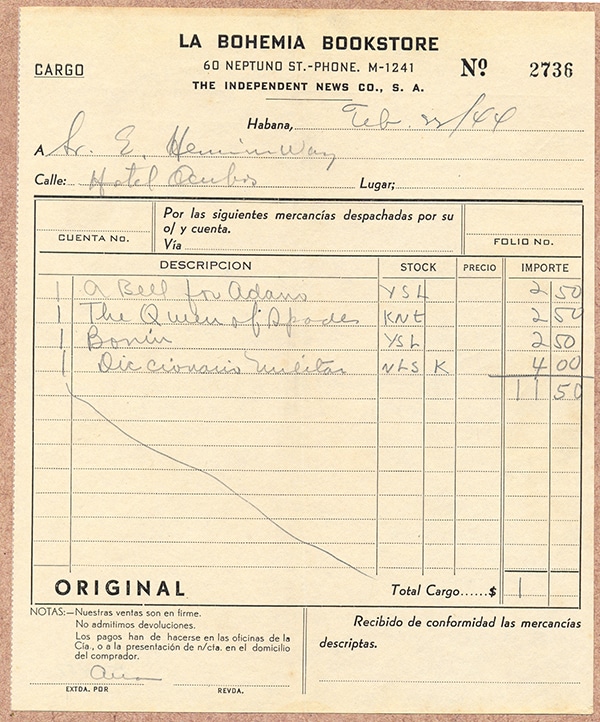 LA BOHEMIA BOOKSTORE
CARGO 60 NEPTUNO ST.-PHONE. M-1241 Nº 2736
THE INDEPENDENT NEWS CO., S. A.
Habana, Feb. 22/44
A Sr. E. Heminway
Calle: Hotel Lugar;
Por las siguientes mercancías despachadas por su
o/ y cuenta.
CUENTA No. Vía FOLIO No.
DESCRIPCION STOCK PRECIO IMPORTE
1 A Bell for Adano YSL 2 50
1 The Queen of Spades KNE 2 50
1 YSL 2 50
1 Diccionario Militar NLS K 4 00
11 50
ORIGINAL Total Cargo......$ 1
NOTAS:—Nuestras ventas son en firme.
No admitimos devoluciones.
Los pagos han de hacerse en las oficinas de la
Cía., o a la presentación de n/cta. en el domicilio
del comprador.
EXTDA. POR REVDA.
Recibido de conformidad las mercancías
descriptas.